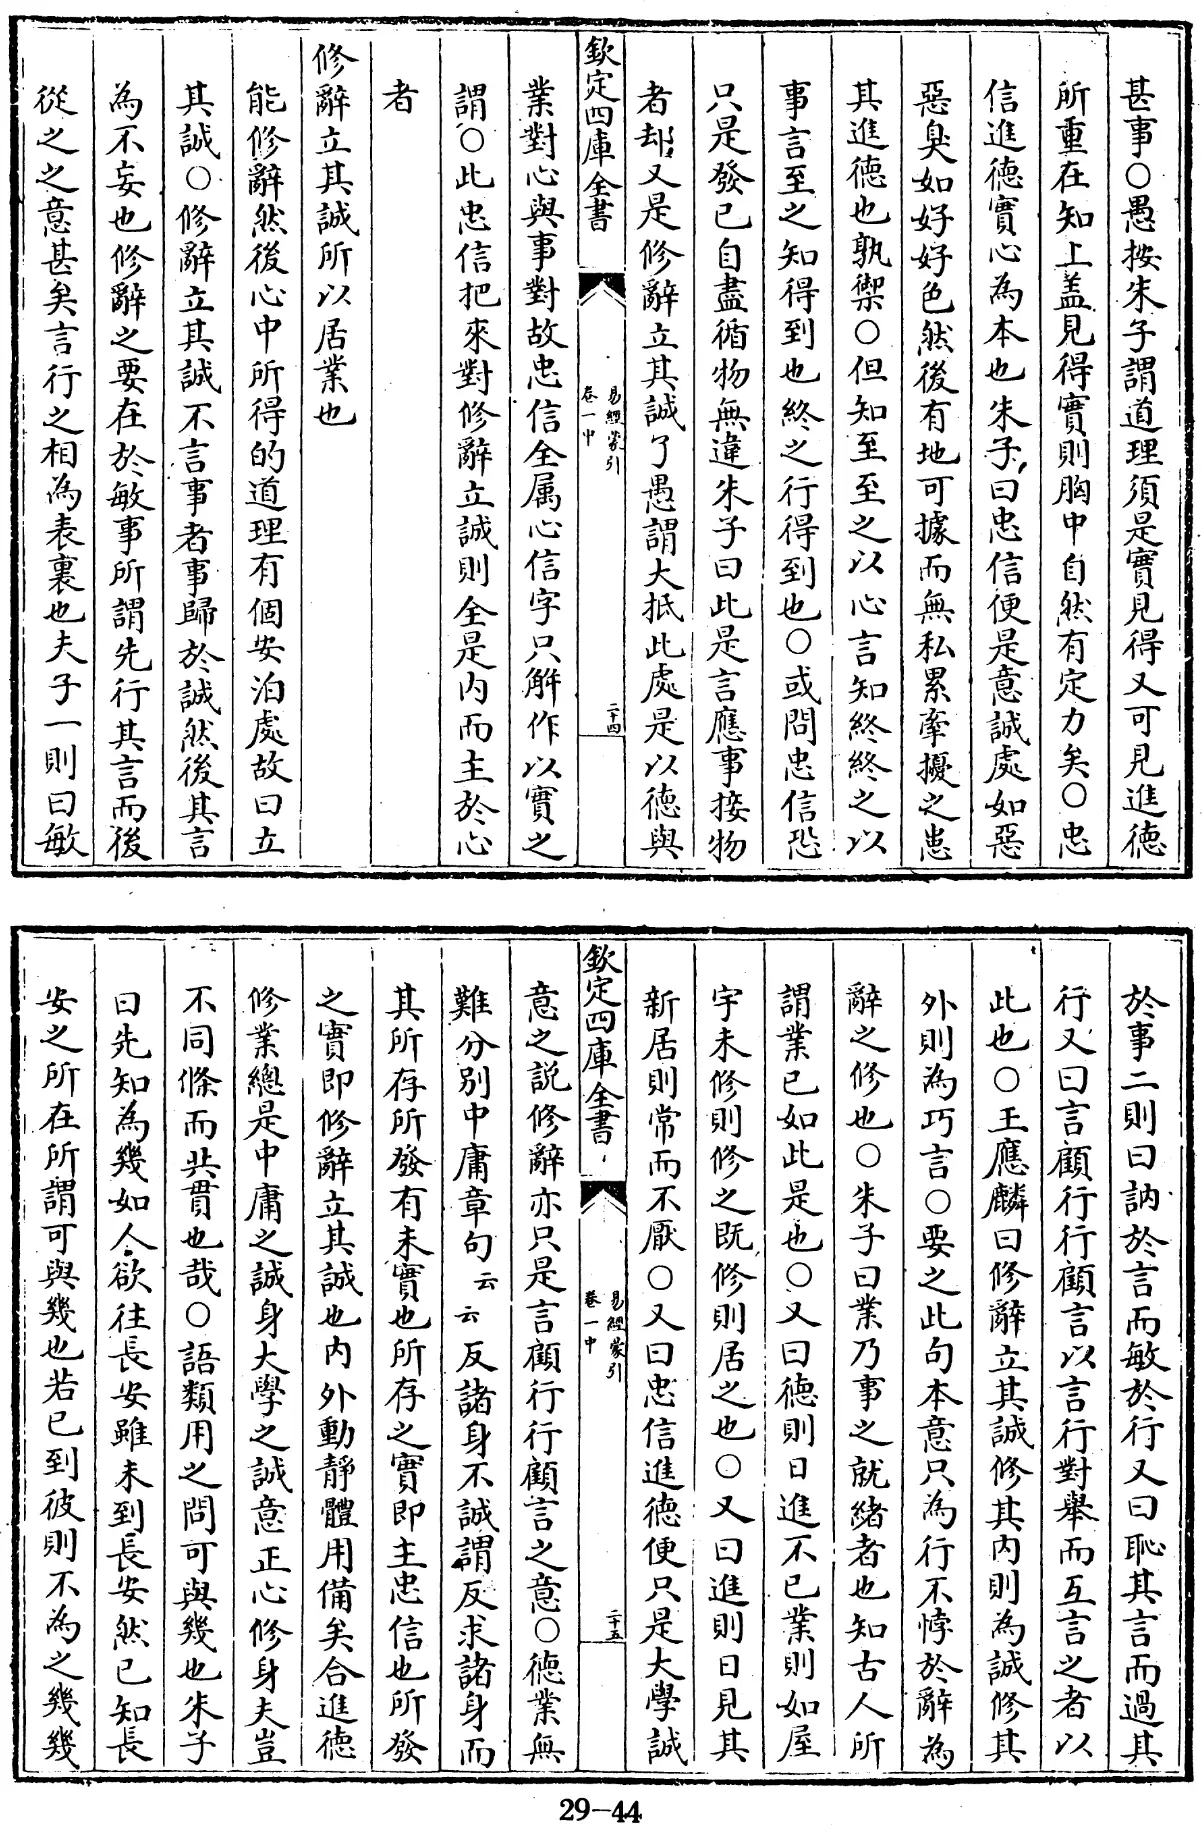 甚事○愚按朱子謂道理須是實見得又可見進德
所重在知上盖見得實則胸中自然有定力矣○忠
信進德實心為本也朱子曰忠信便是意誠處如惡
惡臭如好好色然後有地可據而無私累牽擾之患
其進德也孰禦○但知至至之以心言知終終之以
事言至之知得到也終之行得到也○或問忠信恐
只是發已自盡循物無違朱子曰此是言應事接物
者却又是修辭立其誠了愚謂大抵此處是以德與
欽定四庫全書
易經蒙引
卷一中
二十四
業對心與事對故忠信全属心信字只解作以實之
謂○此忠信把來對修辭立誠則全是内而主於心
者
修辭立其誠所以居業也
能修辭然後心中所得的道理有個安泊處故曰立
其誠○修辭立其誠不言事者事歸於誠然後其言
為不妄也修辭之要在於敏事所謂先行其言而後
從之之意甚矣言行之相為表裏也夫子一則曰敏
於事二則曰訥於言而敏於行又曰恥其言而過其
行又曰言顧行行顧言以言行對舉而互言之者以
此也○王應麟曰修辭立其誠修其内則為誠修其
外則為巧言○要之此句本意只為行不悖於辭為
辭之修也○朱子曰業乃事之就緒者也知古人所
謂業已如此是也○又曰德則日進不已業則如屋
宇未修則修之既修則居之也○又曰進則日見其
新居則常而不厭○又曰忠信進德便只是大學誠
欽定四庫全書
易經蒙引
卷一中
二十五
意之説修辭亦只是言顧行行顧言之意○德業無
難分别中庸章句云云反諸身不誠謂反求諸身而
其所存所發有未實也所存之實即主忠信也所發
之實即修辭立其誠也内外動静體用備矣合進德
修業總是中庸之誠身大學之誠意正心修身夫豈
不同條而共貫也哉○語類用之問可與幾也朱子
曰先知為幾如人欲往長安雖未到長安然已知長
安之所在所謂可與幾也若已到彼則不為之幾幾
29-44